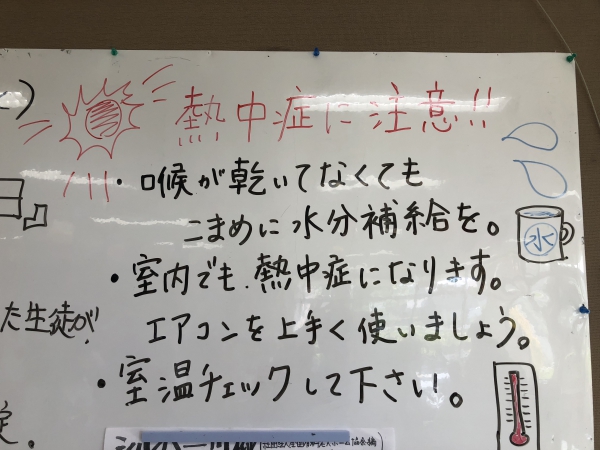 熱中症に注意!!
・喉が乾いてなくても
こまめに水分補給を。
水
・室内でも.熱中症になります。
た生徒が
エアコンを上手く使いましょう。
・室温チェックして下さい。
定。